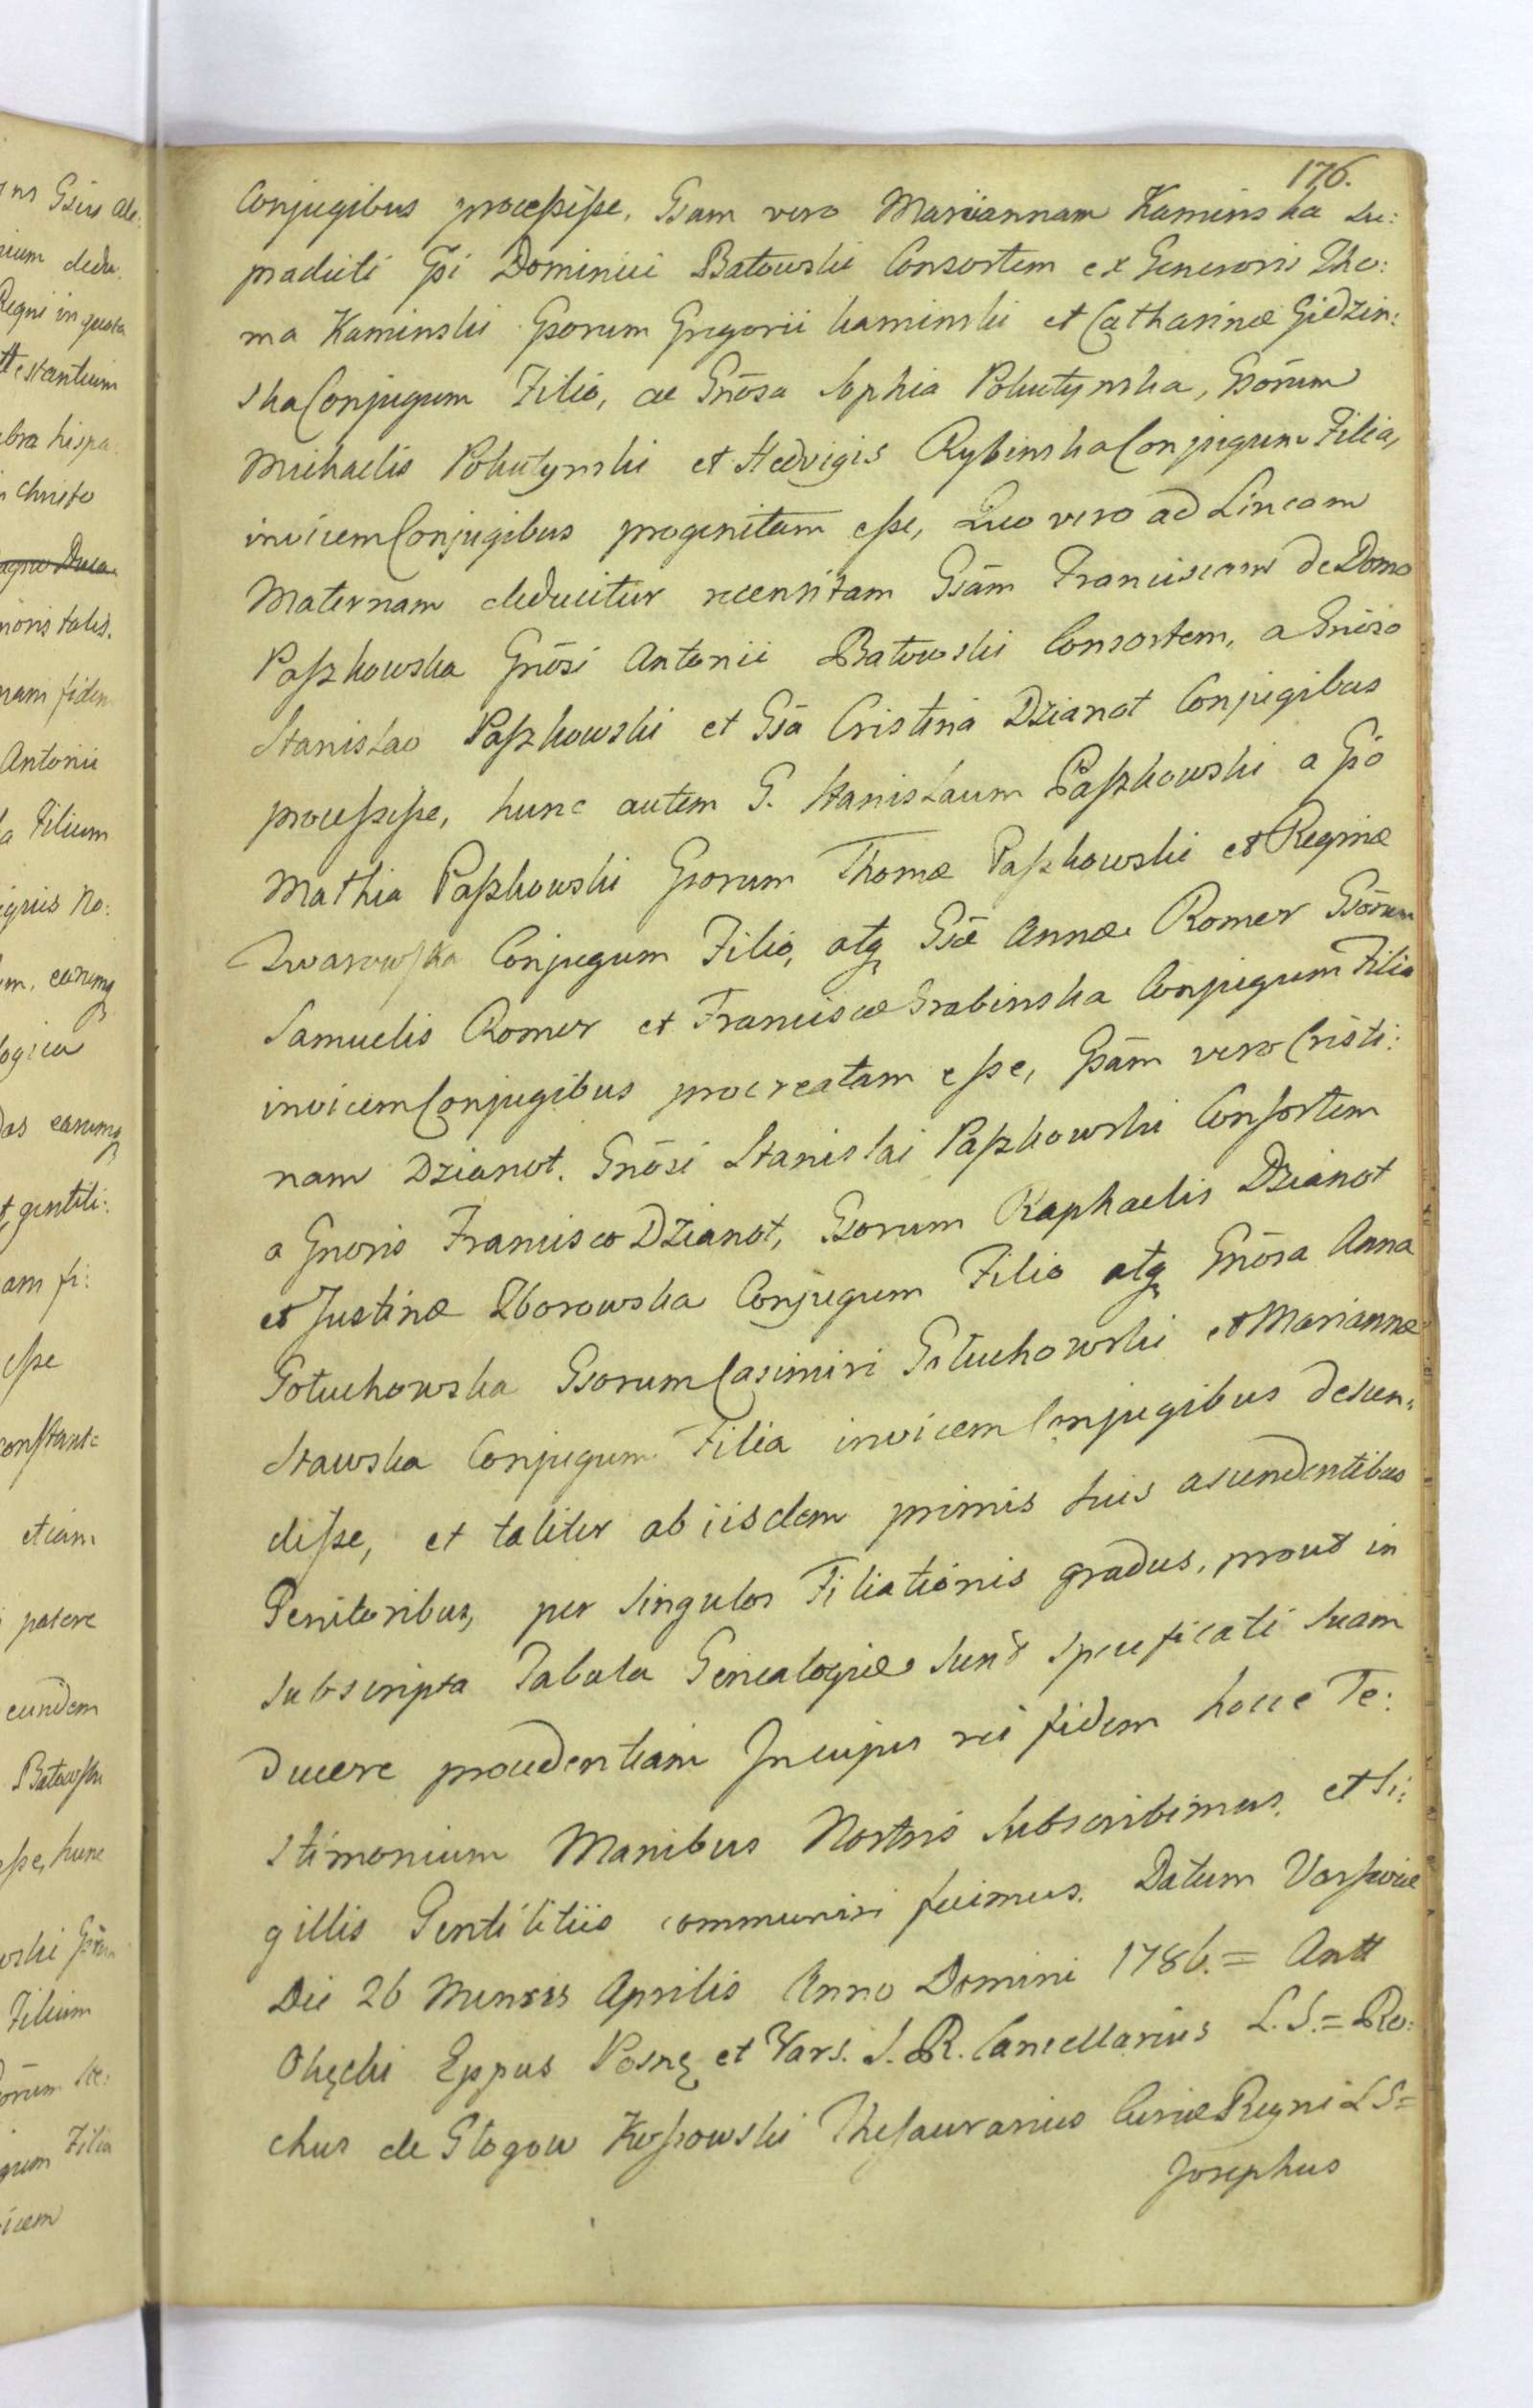 176.
Conjugibus processisse, Gsam vero Mariannam Kaminska su:
pradicti Gsi Dominici Batowski Consortem ex Generosis Tho:
ma Kaminski Gsorum Gregorii Kaminski et Catharinæ Gidzin:
ska Conjugum Filio, ac Gnõsa Sophia Pokutynska, Gsõrum
Michaelis Pokutynski et Hedvigis Rybinska Conjugum Filia,
invicem Conjugibus progenitam esse, Quo vero ad Lineam
Maternam deducitur recensitam Gsãm Franciscam de Domo
Paszkowska Gnõsi Antonii Batowski Consortem, a Gnõso
Stanislao Paszkowski et Gsã Cristina Dzianot Conjugibus
processisse, hunc autem G. Stanislaum Paszkowski a Gsõ
Mathia Paszkowski Gsorum Thomæ Paszkowski et Reginæ
Zwarowska Conjugum Filio, atq Gsæ Annæ Romer Gsõrum
Samuelis Romer et Franciscæ Grabinska Conjugum Filia
invicem Conjugibus procreatam esse, Gsãm vero Cristi:
nam Dzianot. Gnõsi Stanislai Paszkowski Consortem
a Gneris Francisco Dzianot, Gsorum Raphaelis Dzianot
et Justinæ Zborowska Conjugum Filio atq Gnõsa Anna
Gołuchowska Gsorum Casimiri Gołuchowski et Mariannæ
Stawska Conjugum Filia invicem Conjugibus descen:
disse, et taliter ab iisdem primis suis ascendentibus
Genitoribus, per singulos Filiationis gradus, prout in
subscripta Tabula Genealogiæ sunt specificati suam
Ducere procedentiam In cujus rei fidem hocce Te:
stimonium Manibus Nostris subscribimus, et Si:
gillis Gentilitiis communiri fecimus. Datum Varsaviæ
Die 26 Mensis Aprilis Anno Domini 1786. = Antt
Okęcki Eppus Posnę et Vars. S. R. Cancellarius L. S. = Ro:
chus de Głogow Kossowski Thesaurarius Curiæ Regni L S =
Josephus